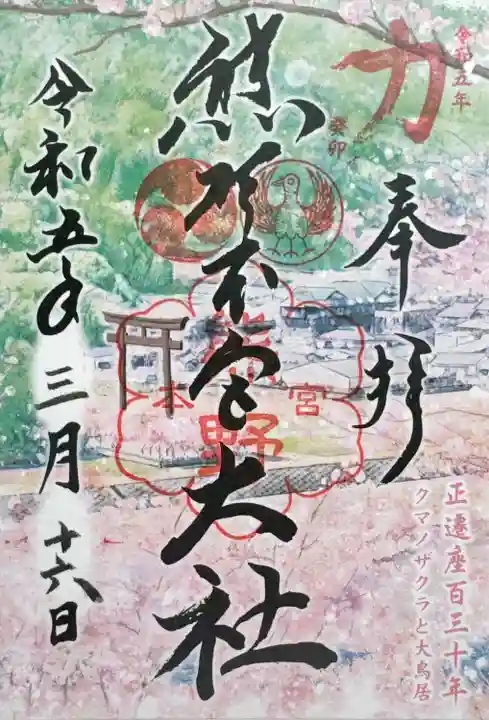 令和五年
力
癸卯
奉拝
正遷座百三十年
クマノザクラと大鳥居
熊野本宮大社
熊野
本宮
令和五年
三月
十六日